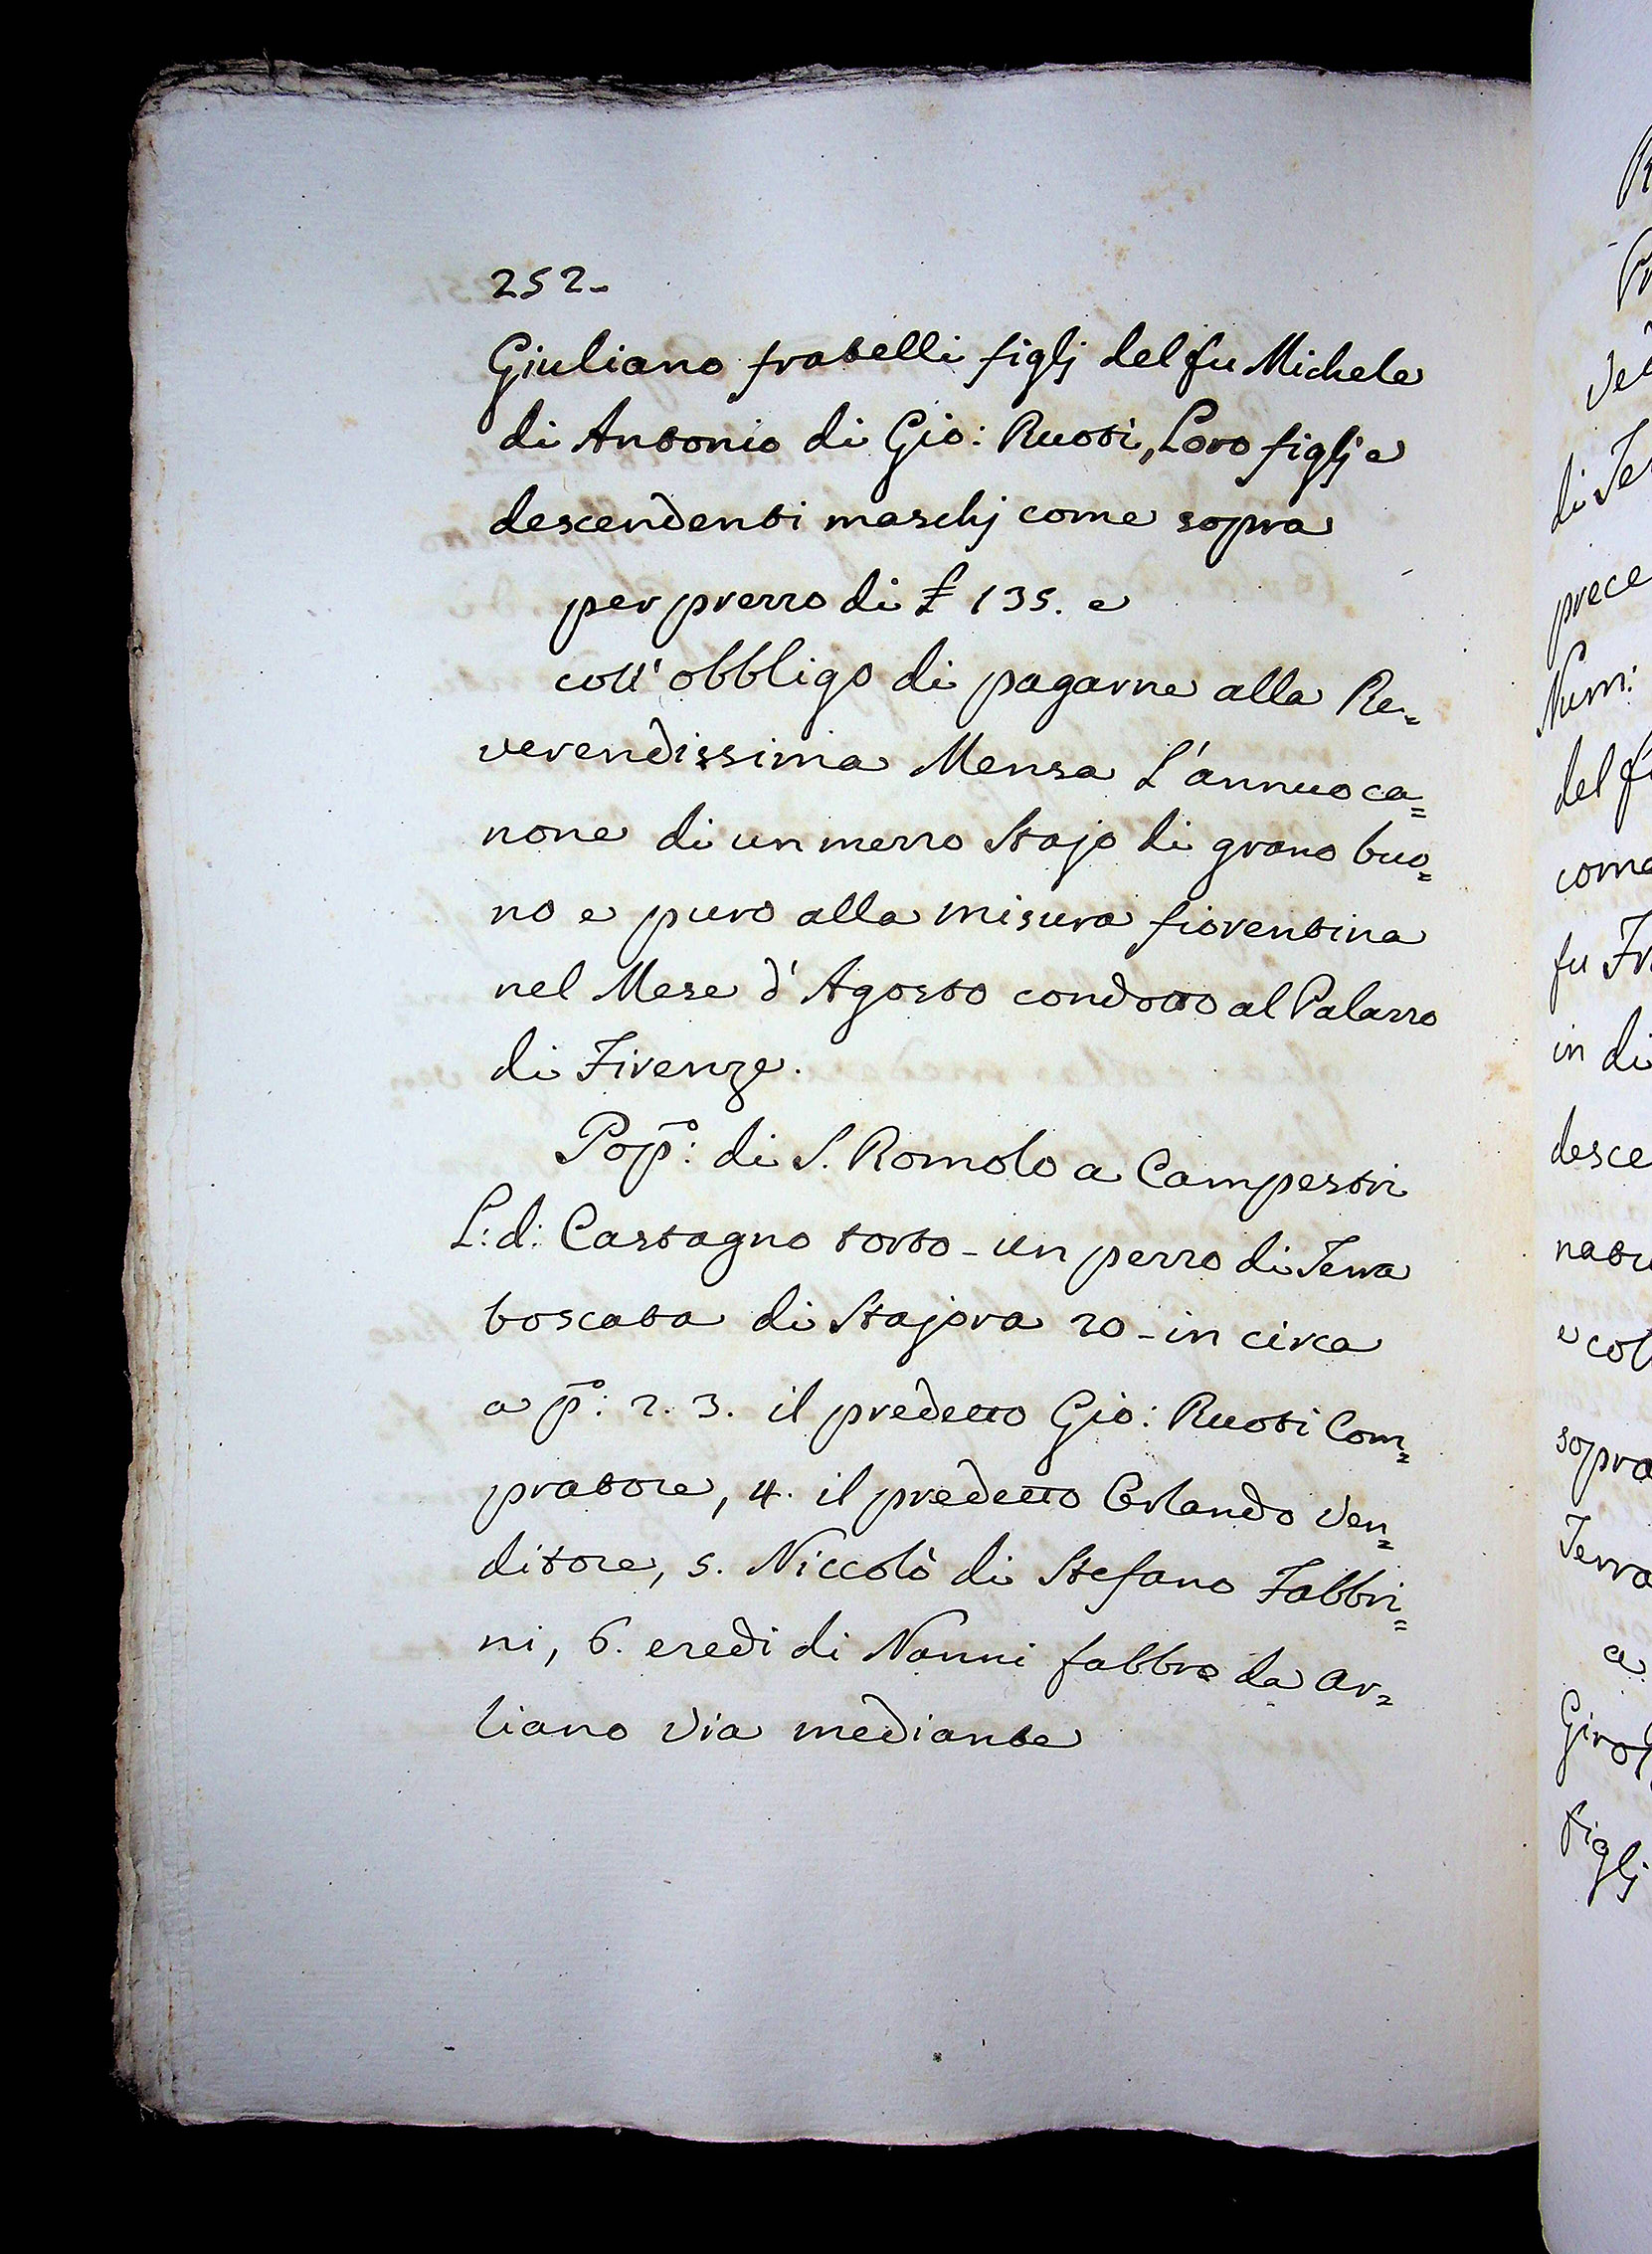 252-
Giuliano fratelli figlj del fu Michele
di Antonio di Gio: Ruoti, Loro figlj e
descendenti maschj come sopra
per prezzo di £ 135. e
coll' obbligo di pagarne alla Re=
verendissima Mensa L'annuo ca=
none di un mezzo Stajo di grano buo=
no e puro alla misura fiorentina
nel Mese d'Agosto condotto al Palazzo
di Firenze.
Pop̄º: di S. Romolo a Campestri
L: d: Castagno torto - un pezzo di Terra
boscata di Stajora 20 - in circa
a p̄º: 2. 3. il predetto Gio: Ruoti Com=
pratore, 4. il predetto Orlando Ven=
ditore, 5. Niccolò di Stefano Fabbri=
ni, 6. eredi di Nanni fabbro da Ar=
liano Via mediante
di Te
prece
Num:
del fu
come
fu Fr
in di
desce
natu
e col
sopra
Terra
a
figlj